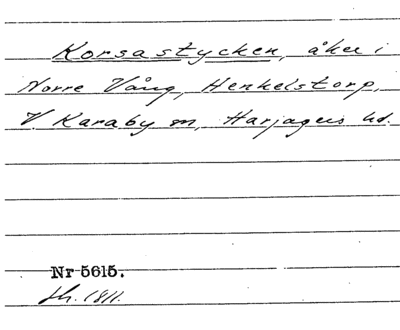 Korsastycken, åker i
Norre Vång, Henkelstorp,
V. Karaby sn, Harjagers hd.
Nr 5615.
1811.